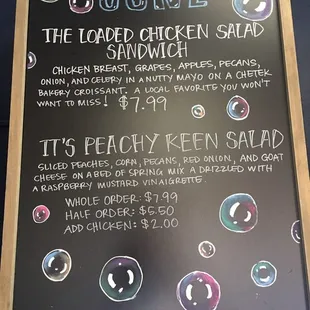 JUNE
THE LOADED CHICKEN SALAD
SANDWICH
CHICKEN BREAST, GRAPES, APPLES, PECANS,
ONION, AND CELERY IN A NUTTY MAYO ON A CHETEK
BAKERY CROISSANT. A LOCAL FAVORITE YOU WON'T
WANT TO MISS! $7.99
IT'S PEACHY KEEN SALAD
SLICED PEACHES, CORN, PECANS, RED ONION, AND GOAT
CHEESE ON A BED OF SPRING MIX & DRIZZLED WITH
A RASPBERRY MUSTARD VINAIGRETTE.
WHOLE ORDER: $7.99
HALF ORDER: $5.50
ADD CHICKEN: $2.00